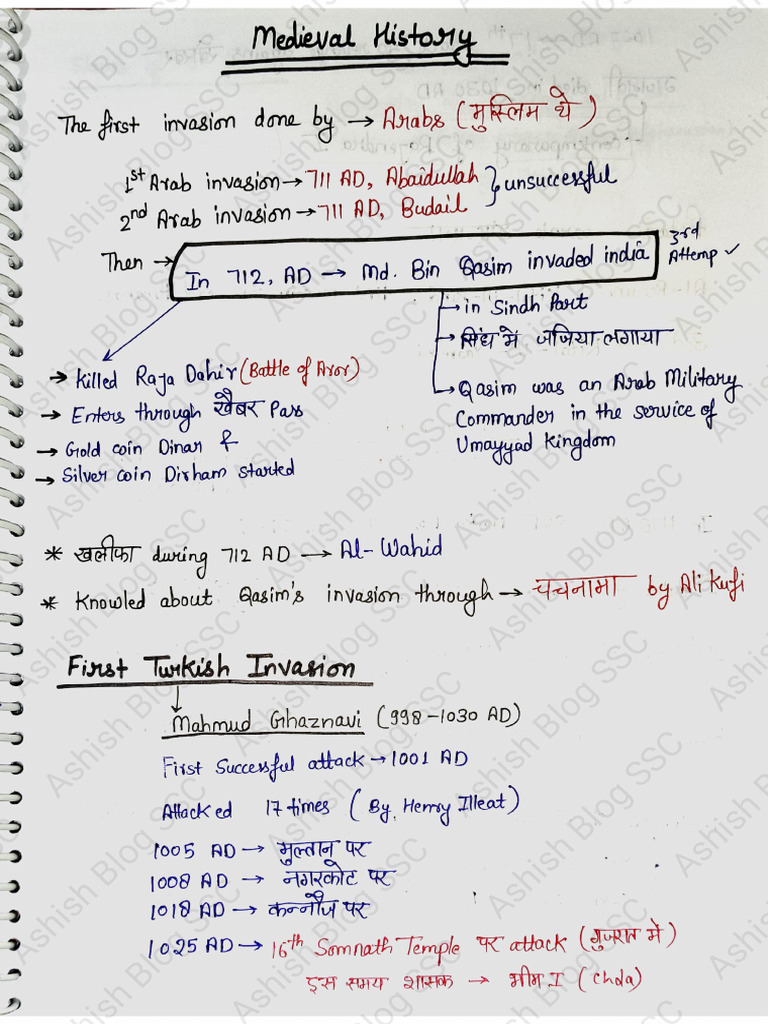 Medieval History
The first invasion done by → Arabs (मुस्लिम थे)
1st Arab invasion → 711 AD, Abaidullah
2nd Arab invasion → 711 AD, Budail } unsuccessful
Then → In 712, AD → Md. Bin Qasim invaded india
3rd Attemp ✓
→ in Sindh Part
→ सिंध में जजिया लगाया
→ Qasim was an Arab Military
Commander in the service of
Umayyad Kingdom
→ Killed Raja Dahir (Battle of Aror)
→ Enters through खैबर Pass
→ Gold coin Dinar &
→ Silver coin Dirham started
* खलीफा during 712 AD → Al-Wahid
* Knowled about Qasim's invasion through → चचनामा by Ali Kufi
First Turkish Invasion
Mahmud Ghaznavi (998-1030 AD)
First Successful attack → 1001 AD
Attacked 17 times (By, Henry Illeat)
1005 AD → मुल्तान पर
1008 AD → नगरकोट पर
1018 AD → कन्नौज पर
1025 AD → 16th Somnath Temple पर attack (गुजरात मे)
इस समय शासक → भीम I (
Ashish Blog SSC